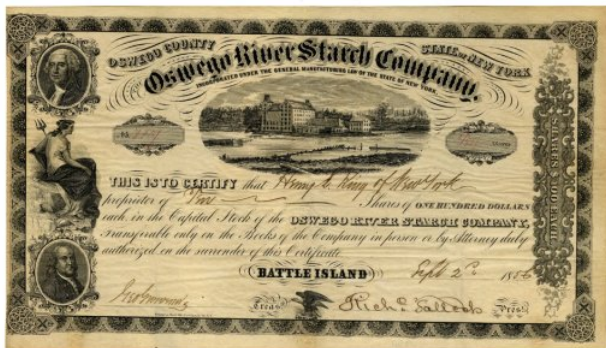 OSWEGO COUNTY STATE OF NEW YORK
Oswego River Starch Company,
INCORPORATED UNDER THE GENERAL MANUFACTURING LAW OF THE STATE OF NEW YORK.
No.
THIS IS TO CERTIFY that Henry C. King of New York
proprietor of Shares of ONE HUNDRED DOLLARS
each in the Capital Stock of the OSWEGO RIVER STARCH COMPANY,
Transferable only on the Books of the Company in person or by Attorney duly
authorized on the surrender of this Certificate
BATTLE ISLAND Sept 2d 1856
Treas Pres
SHARES $100 EACH